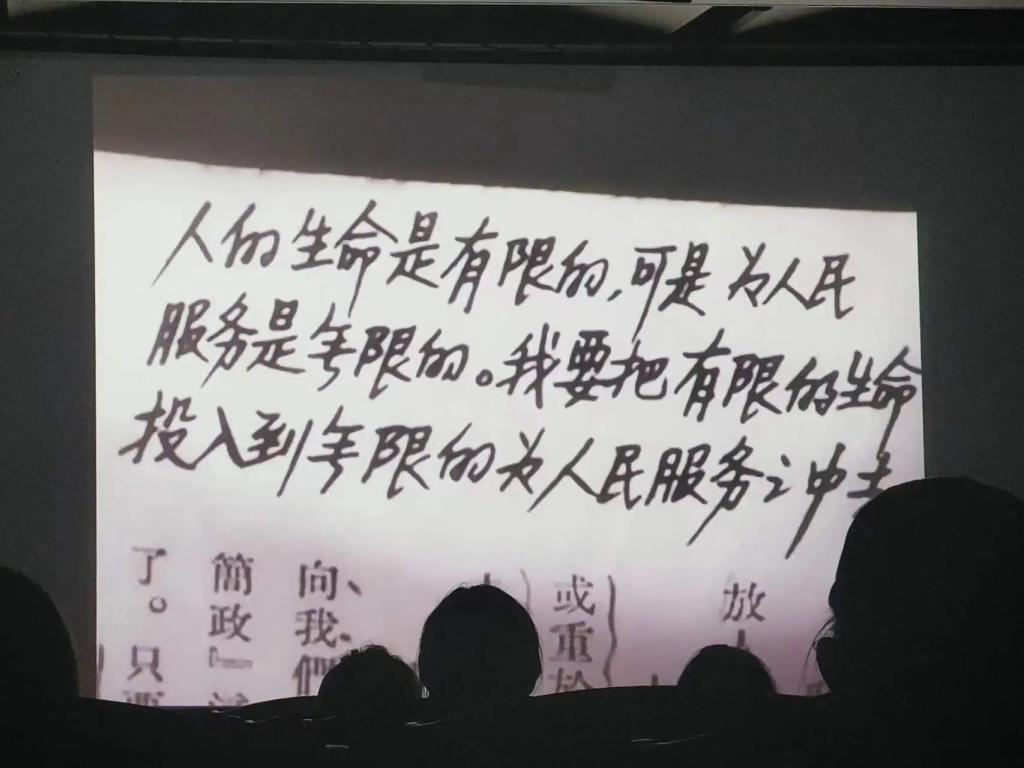 人的生命是有限的,可是为人民
服务是无限的。我要把有限的生命
投入到无限的为人民服务之中去
放
或重於
向、我、們
簡政』
了。只要